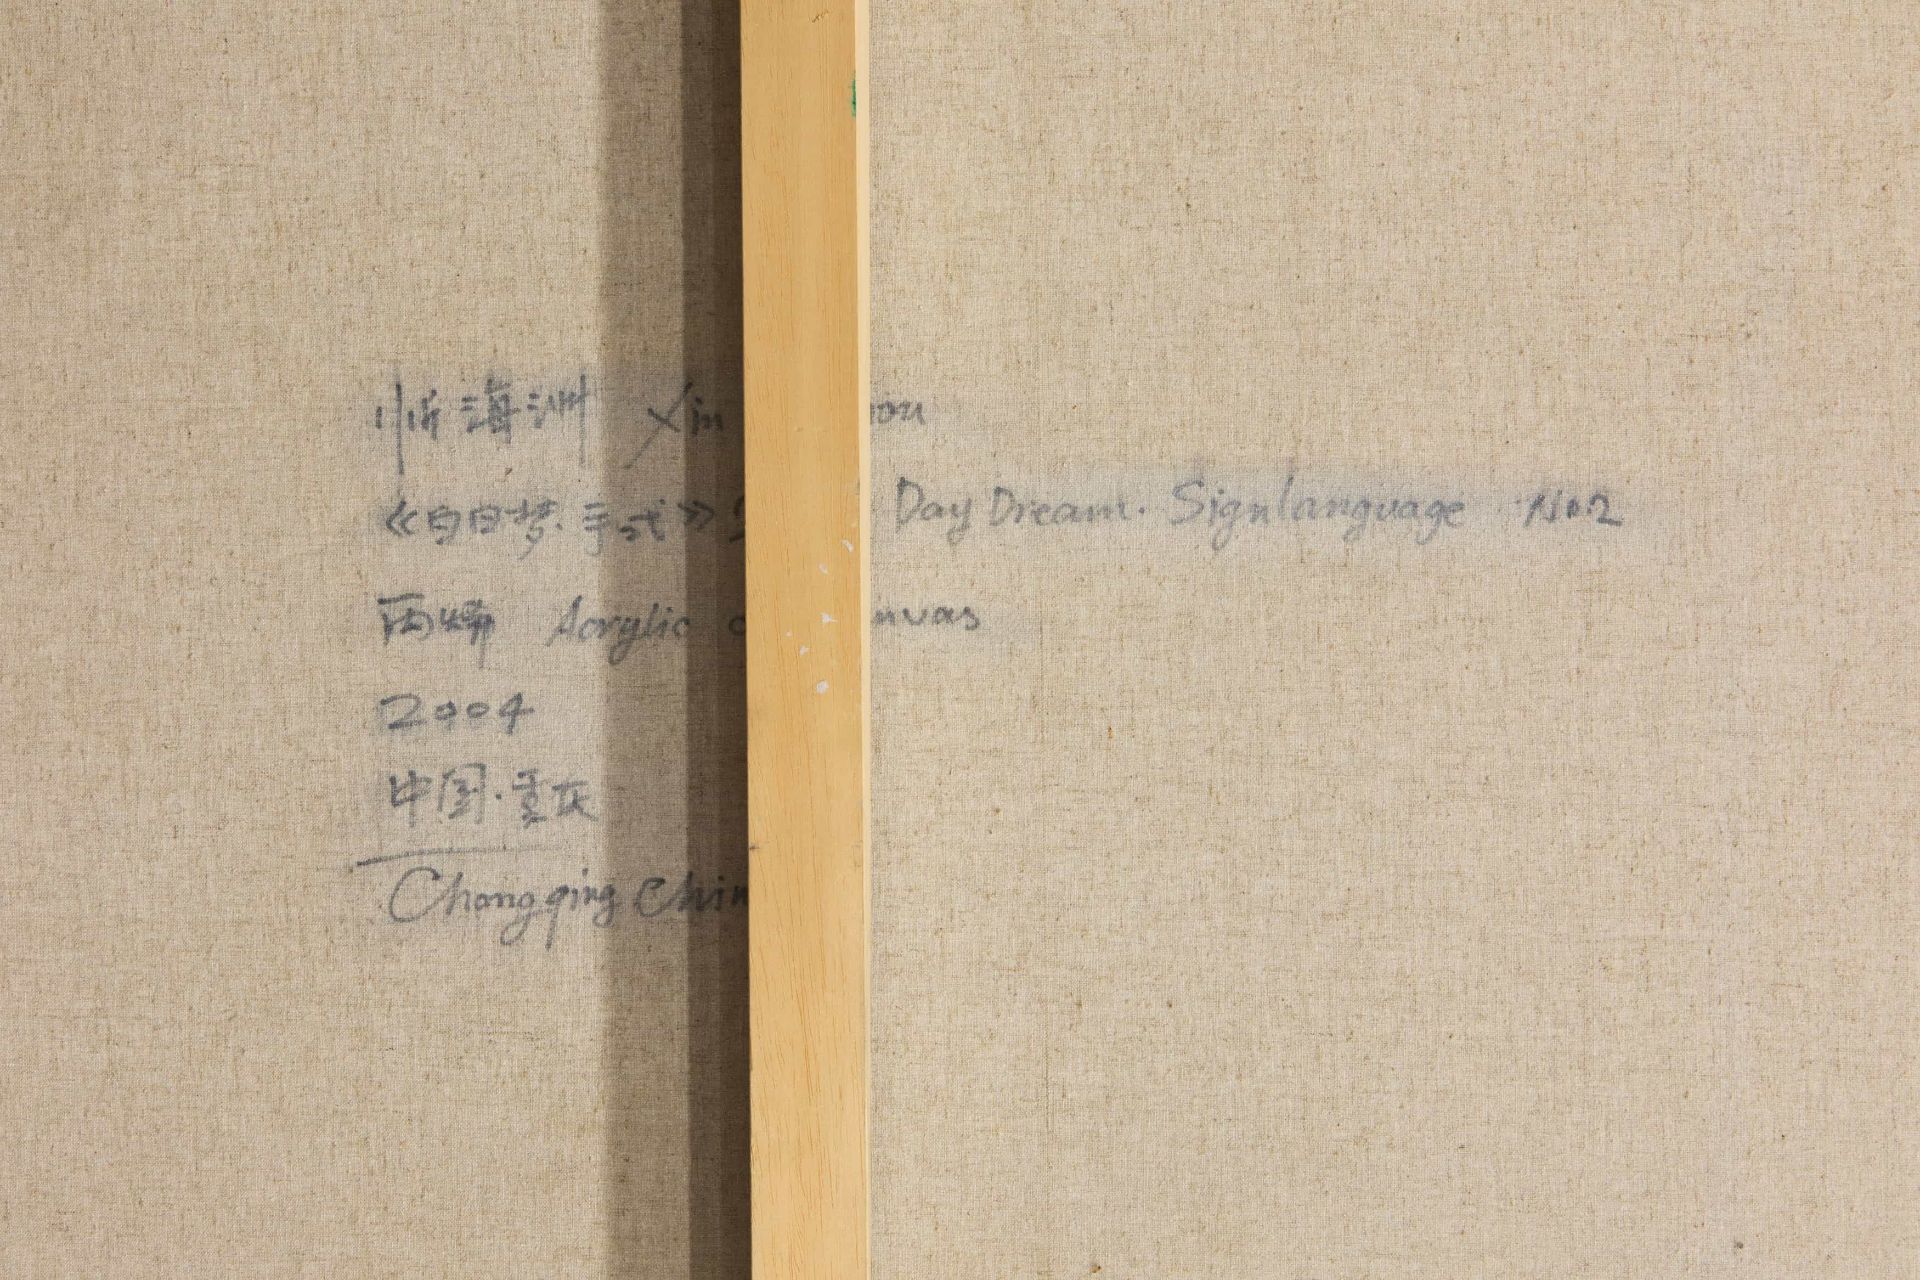 忻海洲 Xin ou
《白日梦·手式》 Day Dream. Signlanguage No.2
丙烯 Acrylic nvas
2004
中国·重庆
Chongqing Chin